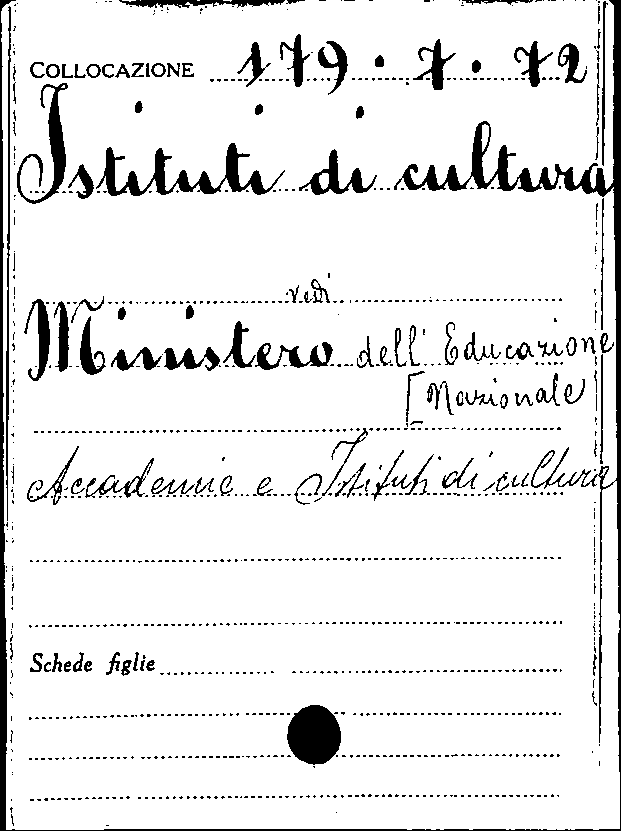 COLLOCAZIONE 179.7.72
Istituti di cultura
vedi
Ministero dell' Educazione
[Nazionale
Accademie e Istituti di cultura
Schede figlie